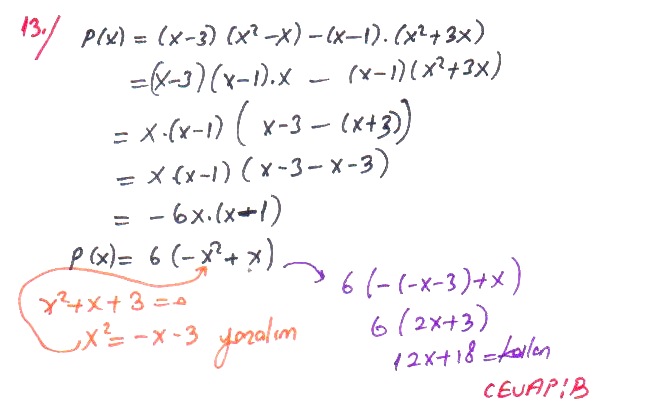 13./ P(x) = (x-3)(x²-x)-(x-1).(x²+3x)
=(x-3)(x-1).x - (x-1)(x²+3x)
= x.(x-1)( x-3 - (x+3))
= x.(x-1)(x-3-x-3)
= -6x.(x-1)
P(x)= 6(-x²+x)
6(-(-x-3)+x)
x²+x+3=0
6(2x+3)
x²=-x-3 yazalım
12x+18=kalan
CEVAP:B